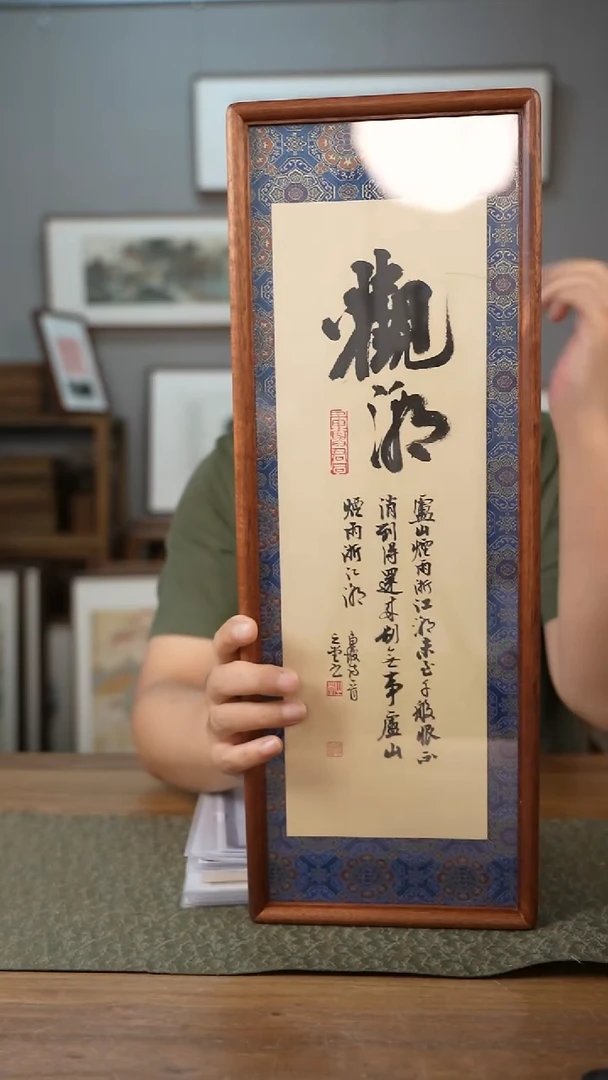 觀潮
廬山煙雨浙江潮未至千般恨不
消到得還來別無事廬山
煙雨浙江潮